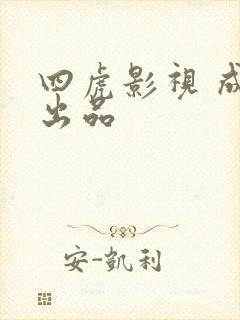 四虎影視
出品
安-凱利